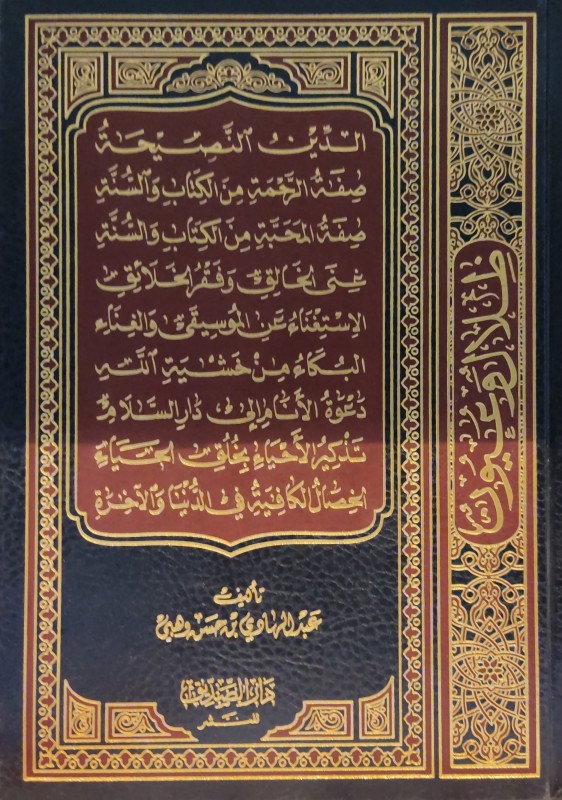 الدِّينُ النَّصِيحَةُ
صِفَةُ الرَّحْمَةِ مِنَ الكِتَابِ وَالسُّنَّةِ
صِفَةُ المَحَبَّةِ مِنَ الكِتَابِ وَالسُّنَّةِ
غِنَى الخَالِقِ وَفَقْرُ الخَلَائِقِ
الاِسْتِغْنَاءُ عَنِ المُوسِيقَى وَالغِنَاءِ
البُكَاءُ مِنْ خَشْيَةِ اللَّهِ
دَعْوَةُ الأَنَامِ إِلَى دَارِ السَّلَامِ
تَذْكِيرُ الأَحْيَاءِ بِخُلُقِ الحَيَاءِ
الخِصَالُ الكَافِيَةُ فِي الدُّنْيَا وَالآخِرَةِ
تأليف
عبد الهادي بن حسن وهبي
دار الصديق
للنشر
ظلال وعيون